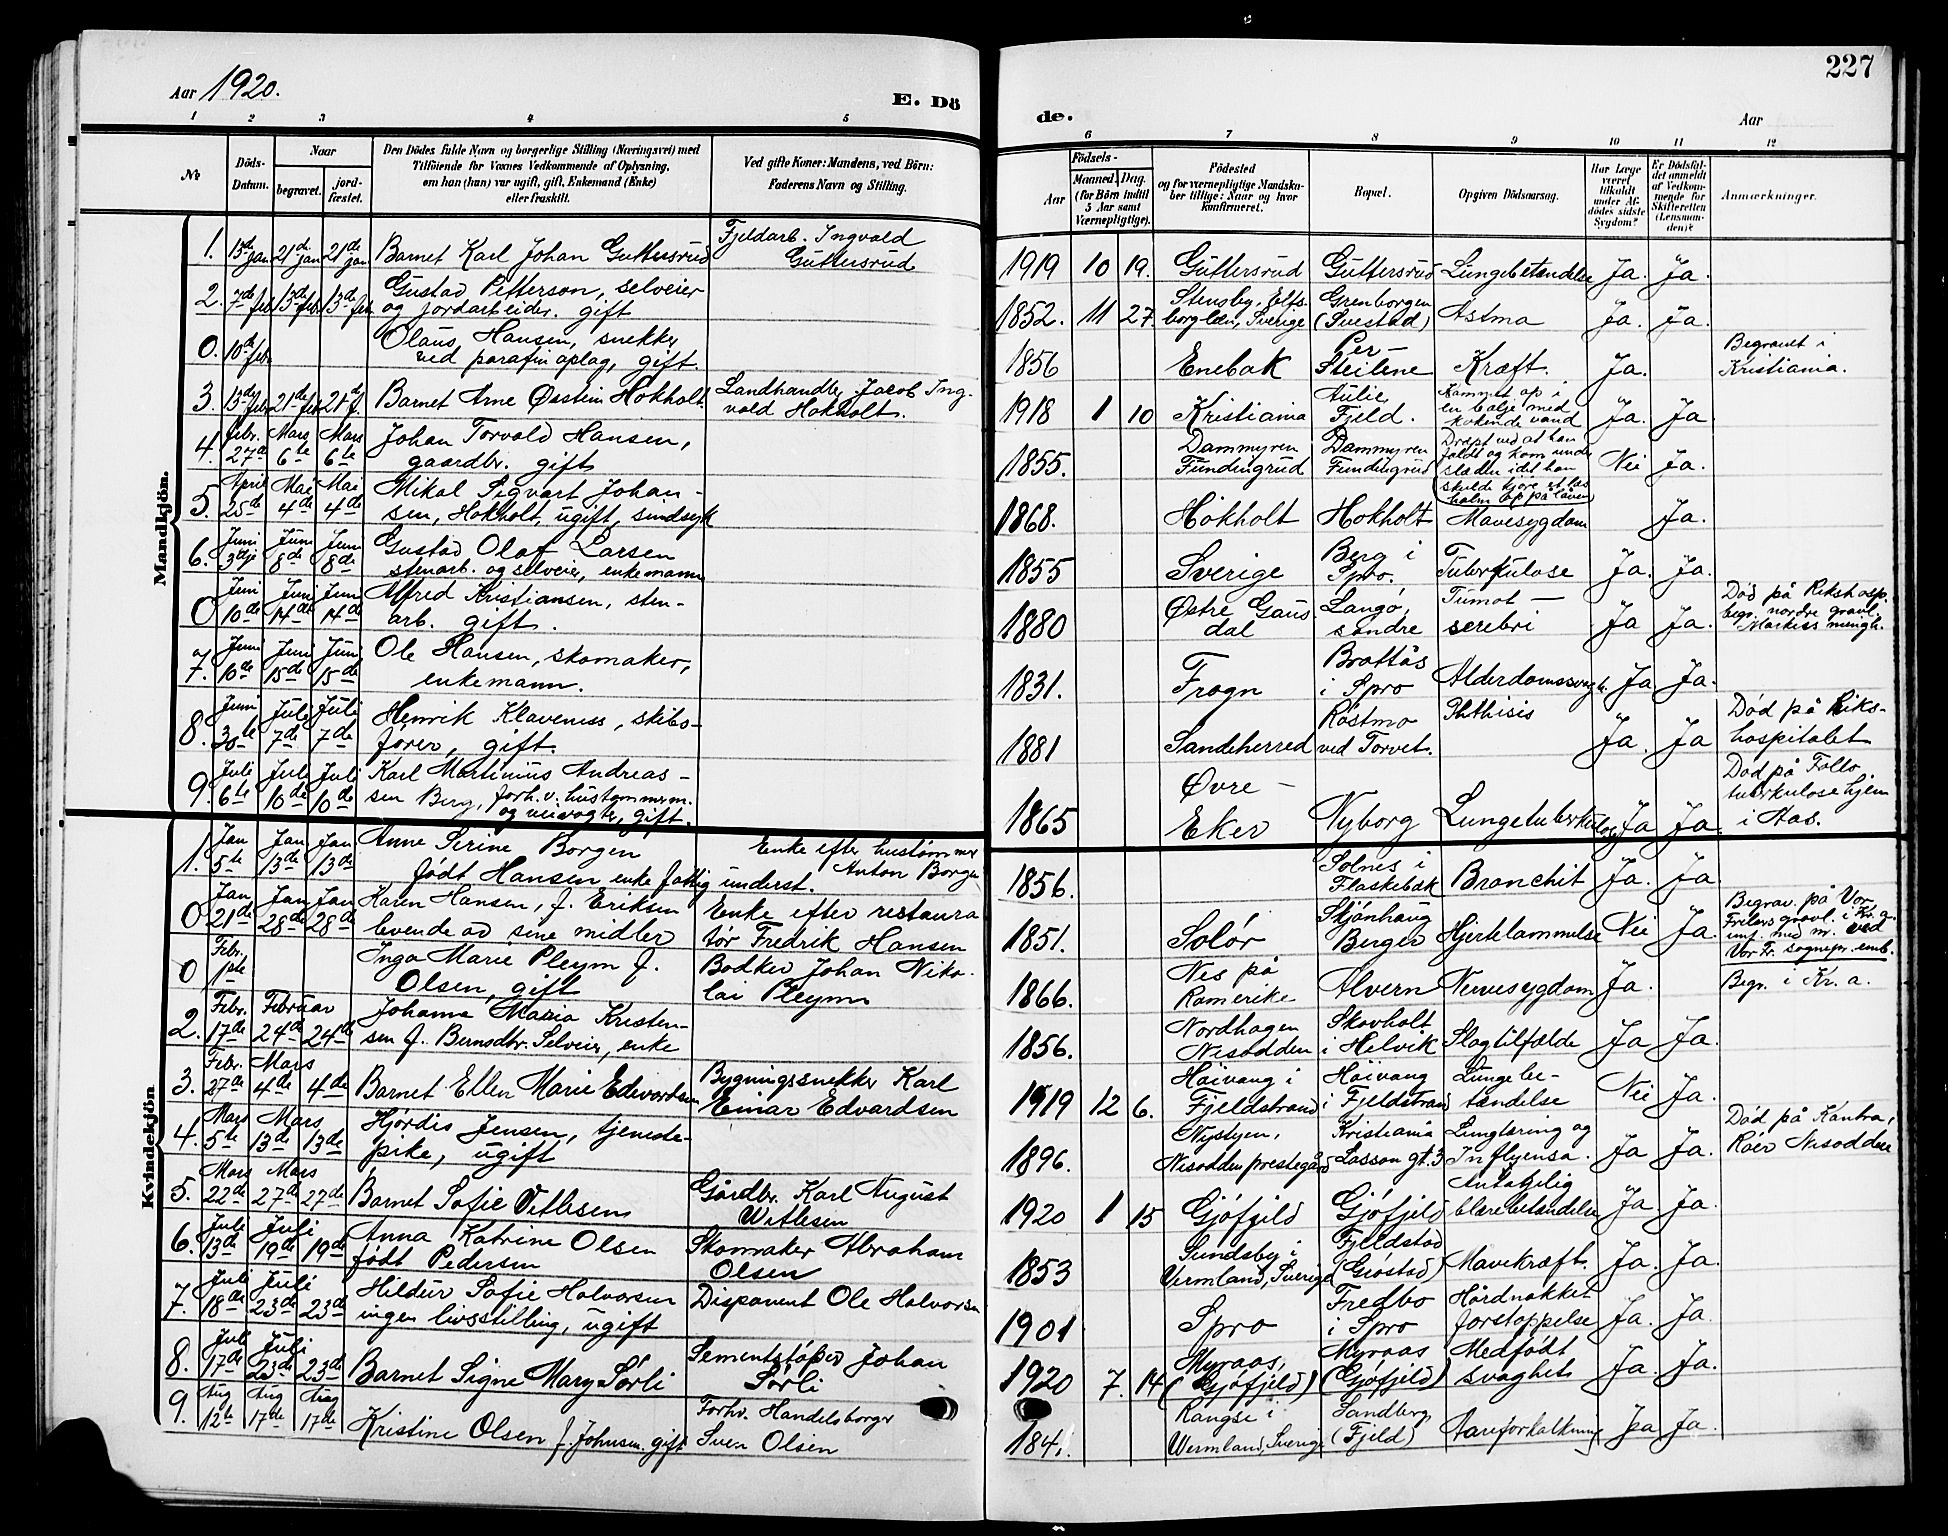 Aar 1920.
E. Dö
1 2 3 4 5
No
Döds-Datum.
Naar
begravet.
jord-fæstet.
Den Dödes fulde Navn og borgerlige Stilling (Næringsvei) med
Tilföiende for Voxnes Vedkommende af Oplysning,
om han (hun) var ugift, gift, Enkemand (Enke)
eller fraskilt.
Ved gifte Koner: Mandens, ved Börn:
Faderens Navn og Stilling.
Mandkjön.
1. 13de jan 21de jan 21de jan Barnet Karl Johan Guttersrud Fjeldarb. Ingvald
Guttersrud
2. 7de feb 13de feb 13de feb Gustad Petterson, selveier
og jordarbeider. gift
0. 10de feb. Olaus Hansen, snekker
ved parafinoplag, gift.
3. 13de feb 21de feb 21de f. Barnet Arne Øistein Hokholt. Landhandler Jacob Ing-
vold Hokholt.
4. febr. 27de Mars 6te Mars 6te Johan Torvald Hansen,
gaardbr. gift
5. April 25de Mai 4de Mai 4de Mikal Sigvart Johan-
sen, Hokholt, ugift, sindsyk
6. Juni 3dje Juni 8de Juni 8de Gustad Olaf Larsen
stenarb. og selveier, enkemann
0 Juni 10de Juni 14de Juni 14de Alfred Kristiansen, sten-
arb. gift.
7. Juni 10de Juni 15de Juni 15de Ole Hansen, skomaker,
enkemann.
8. Juni 30te Juli 7de Juli 7de Henrik Klaveness, skibs-
fører, gift.
9. Juli 6te Juli 10de Juli 10de Karl Martinius Andreas-
sen Berg, forh. v. hustømmerm.
og veivogter, gift.
Kvindekjön
1. Jan 5te Jan 13de Jan 13de Anne Serine Borgen Enke efter hustømmer
født Hansen enke fattig underst. Anton Borgen
0 Jan 21de Jan 28de Jan 28de Karen Hansen, f. Eriksen Enke efter restaura
levende av sine midler tør Fredrik Hansen
0 Febr. 1ste Inga Marie Pleym f. Bødker Johan Niko-
Olsen, gift lai Pleym
2. Febr. 17de Februar 24de 24de Johanne Maria Kristen-
sen f. Berntsdtr. Selveier, enke
3. Febr. 27de Mars 4de 4de Barnet Ellen Marie Edvardsen Bygningssnekker Karl
Einar Edvardsen
4. Mars 5te Mars 13de 13de Hjørdis Jensen, tjeneste-
pike, ugift
5. Mars 22de Mars 27de 27de Barnet Sofie Vitlesen Gårdbr. Karl August
Witlesen
6. Juli 13de Juli 19de 19de Anna Katrine Olsen Skomaker Abraham
født Pedersen Olsen
7. Juli 18de Juli 23de 23de Hildur Sofie Halvorsen Disponent Ole Halvorsen
ingen livsstilling, ugift
8. Juli 17de Juli 23de 23de Barnet Signe Mary Sørli Sementstøper Johan
Sørli
9. Aug 12te Aug 17de Aug 17de Kristine Olsen f. Johnsen. gift Forhv. Handelsborger
Sven Olsen
227
de.
Aar
6 7 8 9 10 11 12
Födsels-
Aar
Maaned. Dag.
(for Börn indtil
5 Aar samt
Værnepligtige).
Födested
og for værnepligtige Mandska-
ber tillige: Naar og hvor
konfirmeret.
Bopæl.
Opgiven Dödsaarsag.
Har Læge
været
tilkaldt
under Af-
dödes sidste
Sygdom?
Er Dödsfal-
det anmeldt
af Vedkom-
mende for
Skifteretten
(Lensman-
den)?
Anmærkninger.
1919 10 19. Guttersrud Guttersrud Lungebetændelse Ja. Ja.
1852. 11 27. Stensby, Elfs-
borg län, Sverige Grenborgen
(Svestad) Astma Ja. Ja.
1856 Enebak Per-
Steilene Kræft. Ja. Begravet i
Kristiania.
1918 1 10 Kristiania Aulie
Fjeld. Kommet op i
en balje med
kokende vand Ja. Ja
1855. Dammyren
Fundingrud Dammyren
Fundingrud Dræpt ved at han
faldt og kom under
slæden idet han
skulde kjøre et las
halm op på låven Nei Ja.
1868. Hokholt Hokholt Mavesygdom Ja.
1855 Sverige Berg i
Spro. Tuberkulose Ja. Ja.
1880 Østre Gaus-
dal Langø,
søndre Tumot-
serebri Ja Ja. Død på Rikshosp.
begr. nordre gravl.
1831. Frogn Brattås
i Spro Alderdomssvagh. Ja Ja.
1881 Sandeherred Røstmo
ved Torvet. Phthisis Ja. Ja Død på Riks-
hospitalet
1865 Øvre-
Eker Nyborg Lungetuberkulose Ja Ja. Død på Follo
tuberkulosehjem
i Aas.
1856. Solnes i
Flaskebæk Bronchit Ja. Ja
1851. Solør Skjønhaug
Berger Hjertelammelse Nei Ja. Begrav. på Vor
Frelsers gravl. i Kr. a.
Vor Fr. sognepr. emb.
1866. Nes på
Romerike Alvern Nervesygdom Ja. Begr. i Kr. a.
1856. Nordhagen
Nesodden Skovholt
i Helvik Slagtilfælde Ja Ja.
1919 12 6. Høivang i
Fjeldstrand Høivang
i Fjeldstrand Lungebe-
tændelse Nei Ja.
1896. Nystyen,
Nesodden prestegård Kristiania
Lassons gt. 3 Lungtæring og
Inflyensa. Ja Ja Død på Kantra,
Røer Nesodden
1920 1 15 Gjøfjeld Gjøfjeld Antagelig
blærebetændelse Ja Ja.
1853 Sundsby i
Vermland, Sverige Fjeldstad
(Grøstad) Mavekræft. Ja. Ja.
1901 Spro Fredbo
i Spro Hårdnakket
forstoppelse Ja. Ja.
1920 7. 14 Myraas,
(Gjøfjeld) Myraas
(Gjøfjeld) Medfødt
svaghet Ja. Ja.
184. Rangse i
Wermland, Sverige Sandberg
(Fjeld) Aareforkalkning Ja Ja.